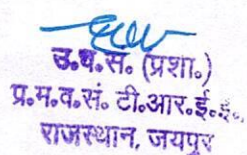 उ.व.सं. (प्रशा.)
प्र.म.व.सं. टी.आर.ई.ई.
राजस्थान, जयपुर